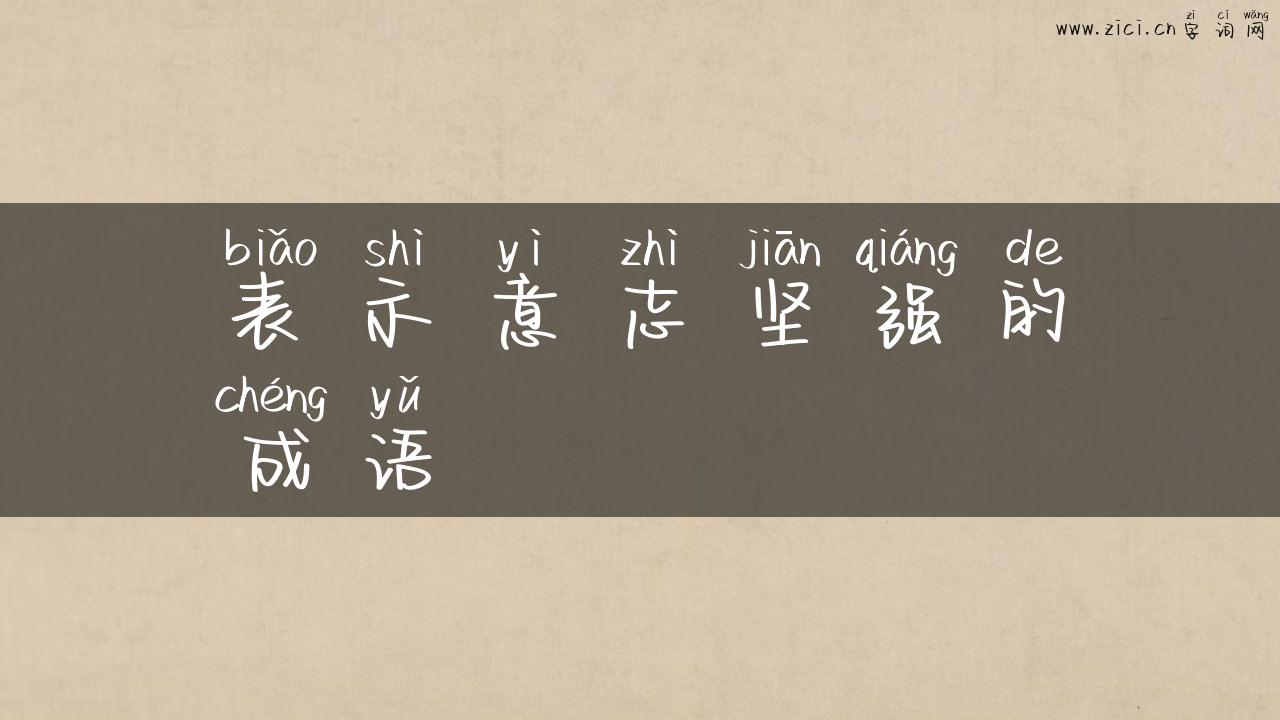 zì cí wǎng
www.zici.cn 字词网
biǎo shì yì zhì jiān qiáng de
表示意志坚强的
chéng yǔ
成语